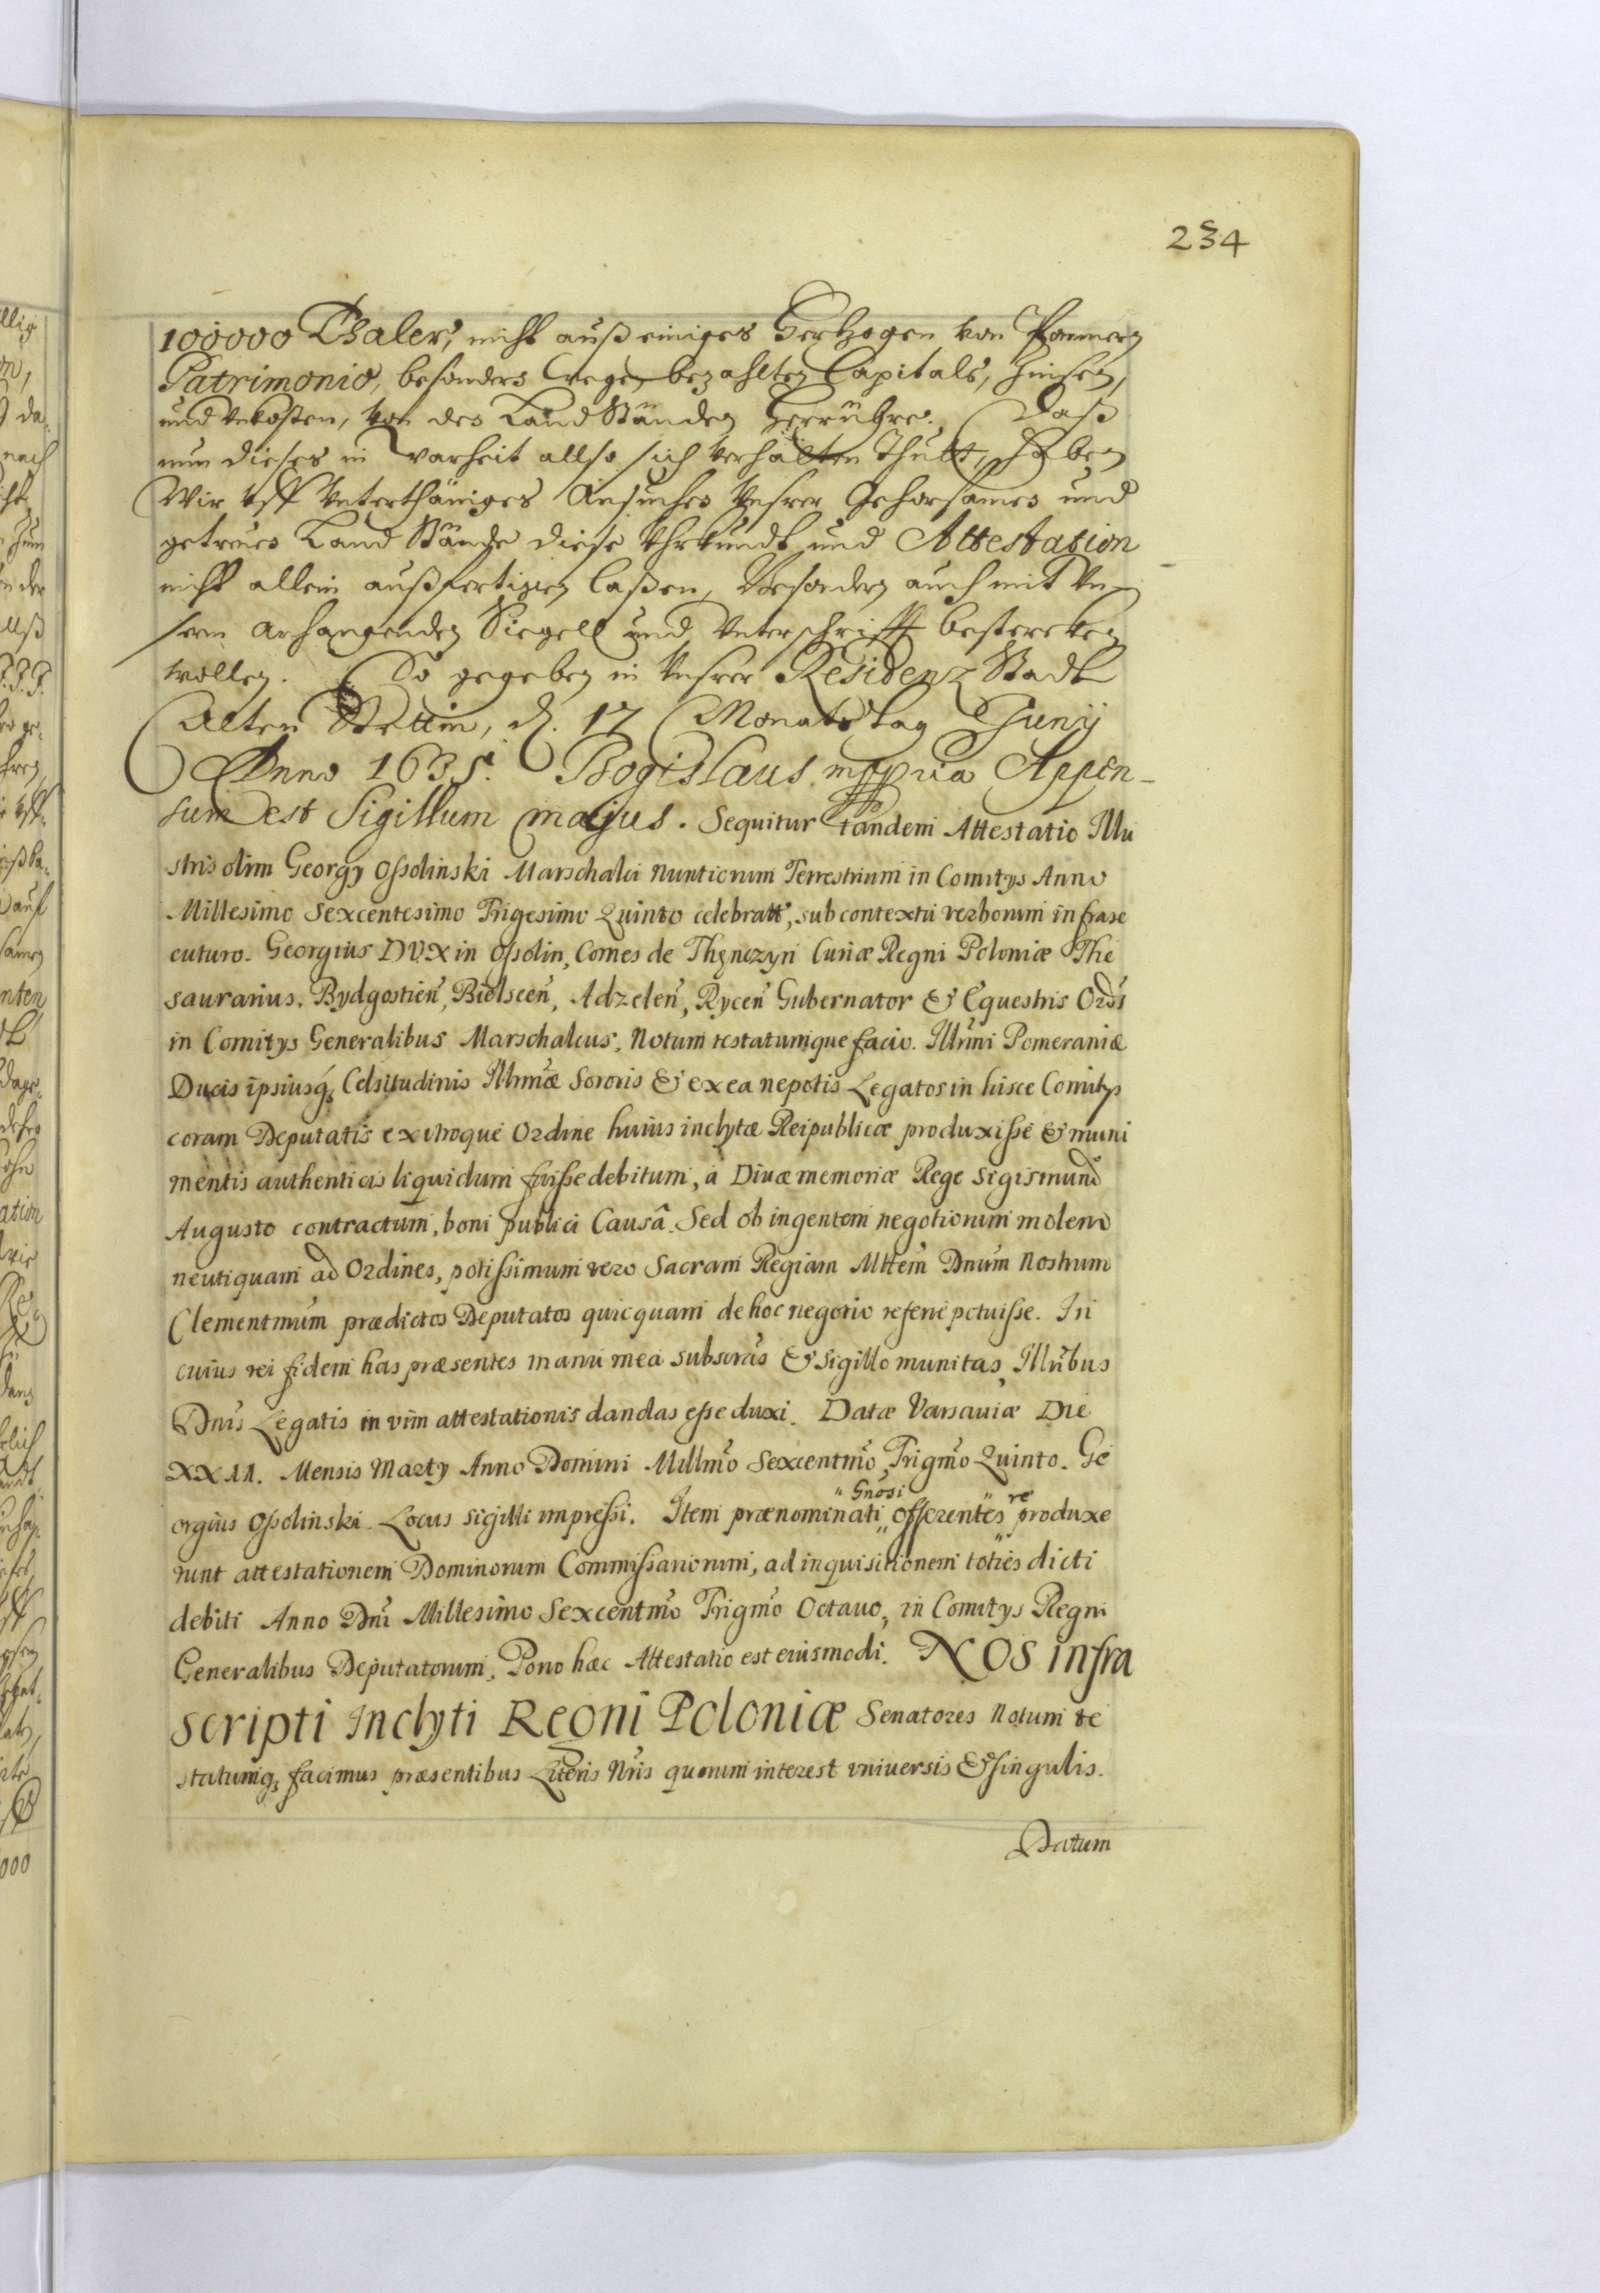 234
100000 Thaler, nicht auß einiges Hertzogen von Pommern
Patrimonio, besonders wegen bezahlten Capitals, Zinsen,
und Vnkosten, von den Land Ständen herrühre. Daß
nun dieses in Warheit allso sich verhalten thutt, Haben
Wir vff Vnterthäniges Ansuchen Vnsrer Gehorsamen und
getreuen Land Stände diese Vhrkundt und Attestation
nicht allein außfertigen laßen, Besondern auch mit Vn-
serm anhangenden Siegell und Vnterschrifft bestercken
wollen. So gegeben in Vnsrer Residenz Stadt
Alten Stettin, d. 17 Monats tag Juny
Anno 1635. Bogislaus mppria Appen-
sum est Sigillum majus. Sequitur tandem Attestatio Illu
stris olim Georgy Ossolinski Marschalci Nuntiorum Terrestrium in Comitys Anno
Millesimo Sexcentesimo Trigesimo Quinto celebratt, sub contextu verborum infrase
cuturo. Georgius DUX in Ossolin, Comes de Thęnczyn Curiæ Regni Poloniæ The
saurarius. Bydgostien, Bielscen, Adzelen, Rycen Gubernator & Equestris Ords
in Comitys Generalibus Marschalcus, Notum testatumque facio. Illrmi Pomeraniæ
Ducis ipsiusq; Celsitudinis Illrmæ Sororis & ex ea nepotis Legatos in hisce Comitys
coram Deputatis ex utroque Ordine huius inclytæ Reipublicæ produxisse & muni
mentis authenticis liquidum fuisse debitum, a Diuæ memoriæ Rege Sigismund
Augusto contractum, boni publici Causâ. Sed ob ingentem negotiorum molem
neutiquam ad Ordines, potissimum vero Sacram Regiam Mttem Dnum Nostrum
Clementmum prædictos Deputatos quicquam de hoc negotio referre potuisse. In
cuius rei fidem has præsentes manu mea subscras & sigillo munitas, Illribus
Dnis Legatis in vim attestationis dandas esse duxi. Datæ Varsauiæ Die
Mensis Marty Anno Domini Millmo Sexcentmo Trigmo Quinto. Ge
orgius Ossolinski. Locus sigilli impressi. Item prænominati Gnosi offerentes re produxe
runt attestationem Dominorum Commissariorum, ad inquisitionem toties dicti
debiti Anno Dni Millesimo Sexcentmo Trigmo Octauo, in Comitys Regni
Generalibus Deputatorum, Porro hæc Attestatio est eiusmodi. NOS infra
scripti Inclyti Regni Poloniæ Senatores Notum te
statumq; facimus præsentibus Literis Nris quorum interest vniuersis & singulis.
Datum